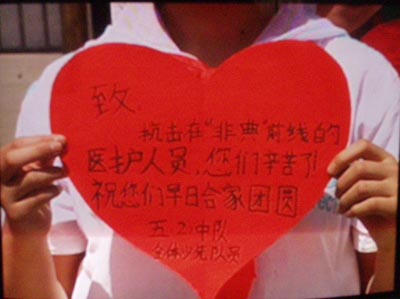 致
抗击在"非典"前线的
医护人员,您们辛苦了!
祝您们早日合家团圆
五.2)中队
全体少先队员